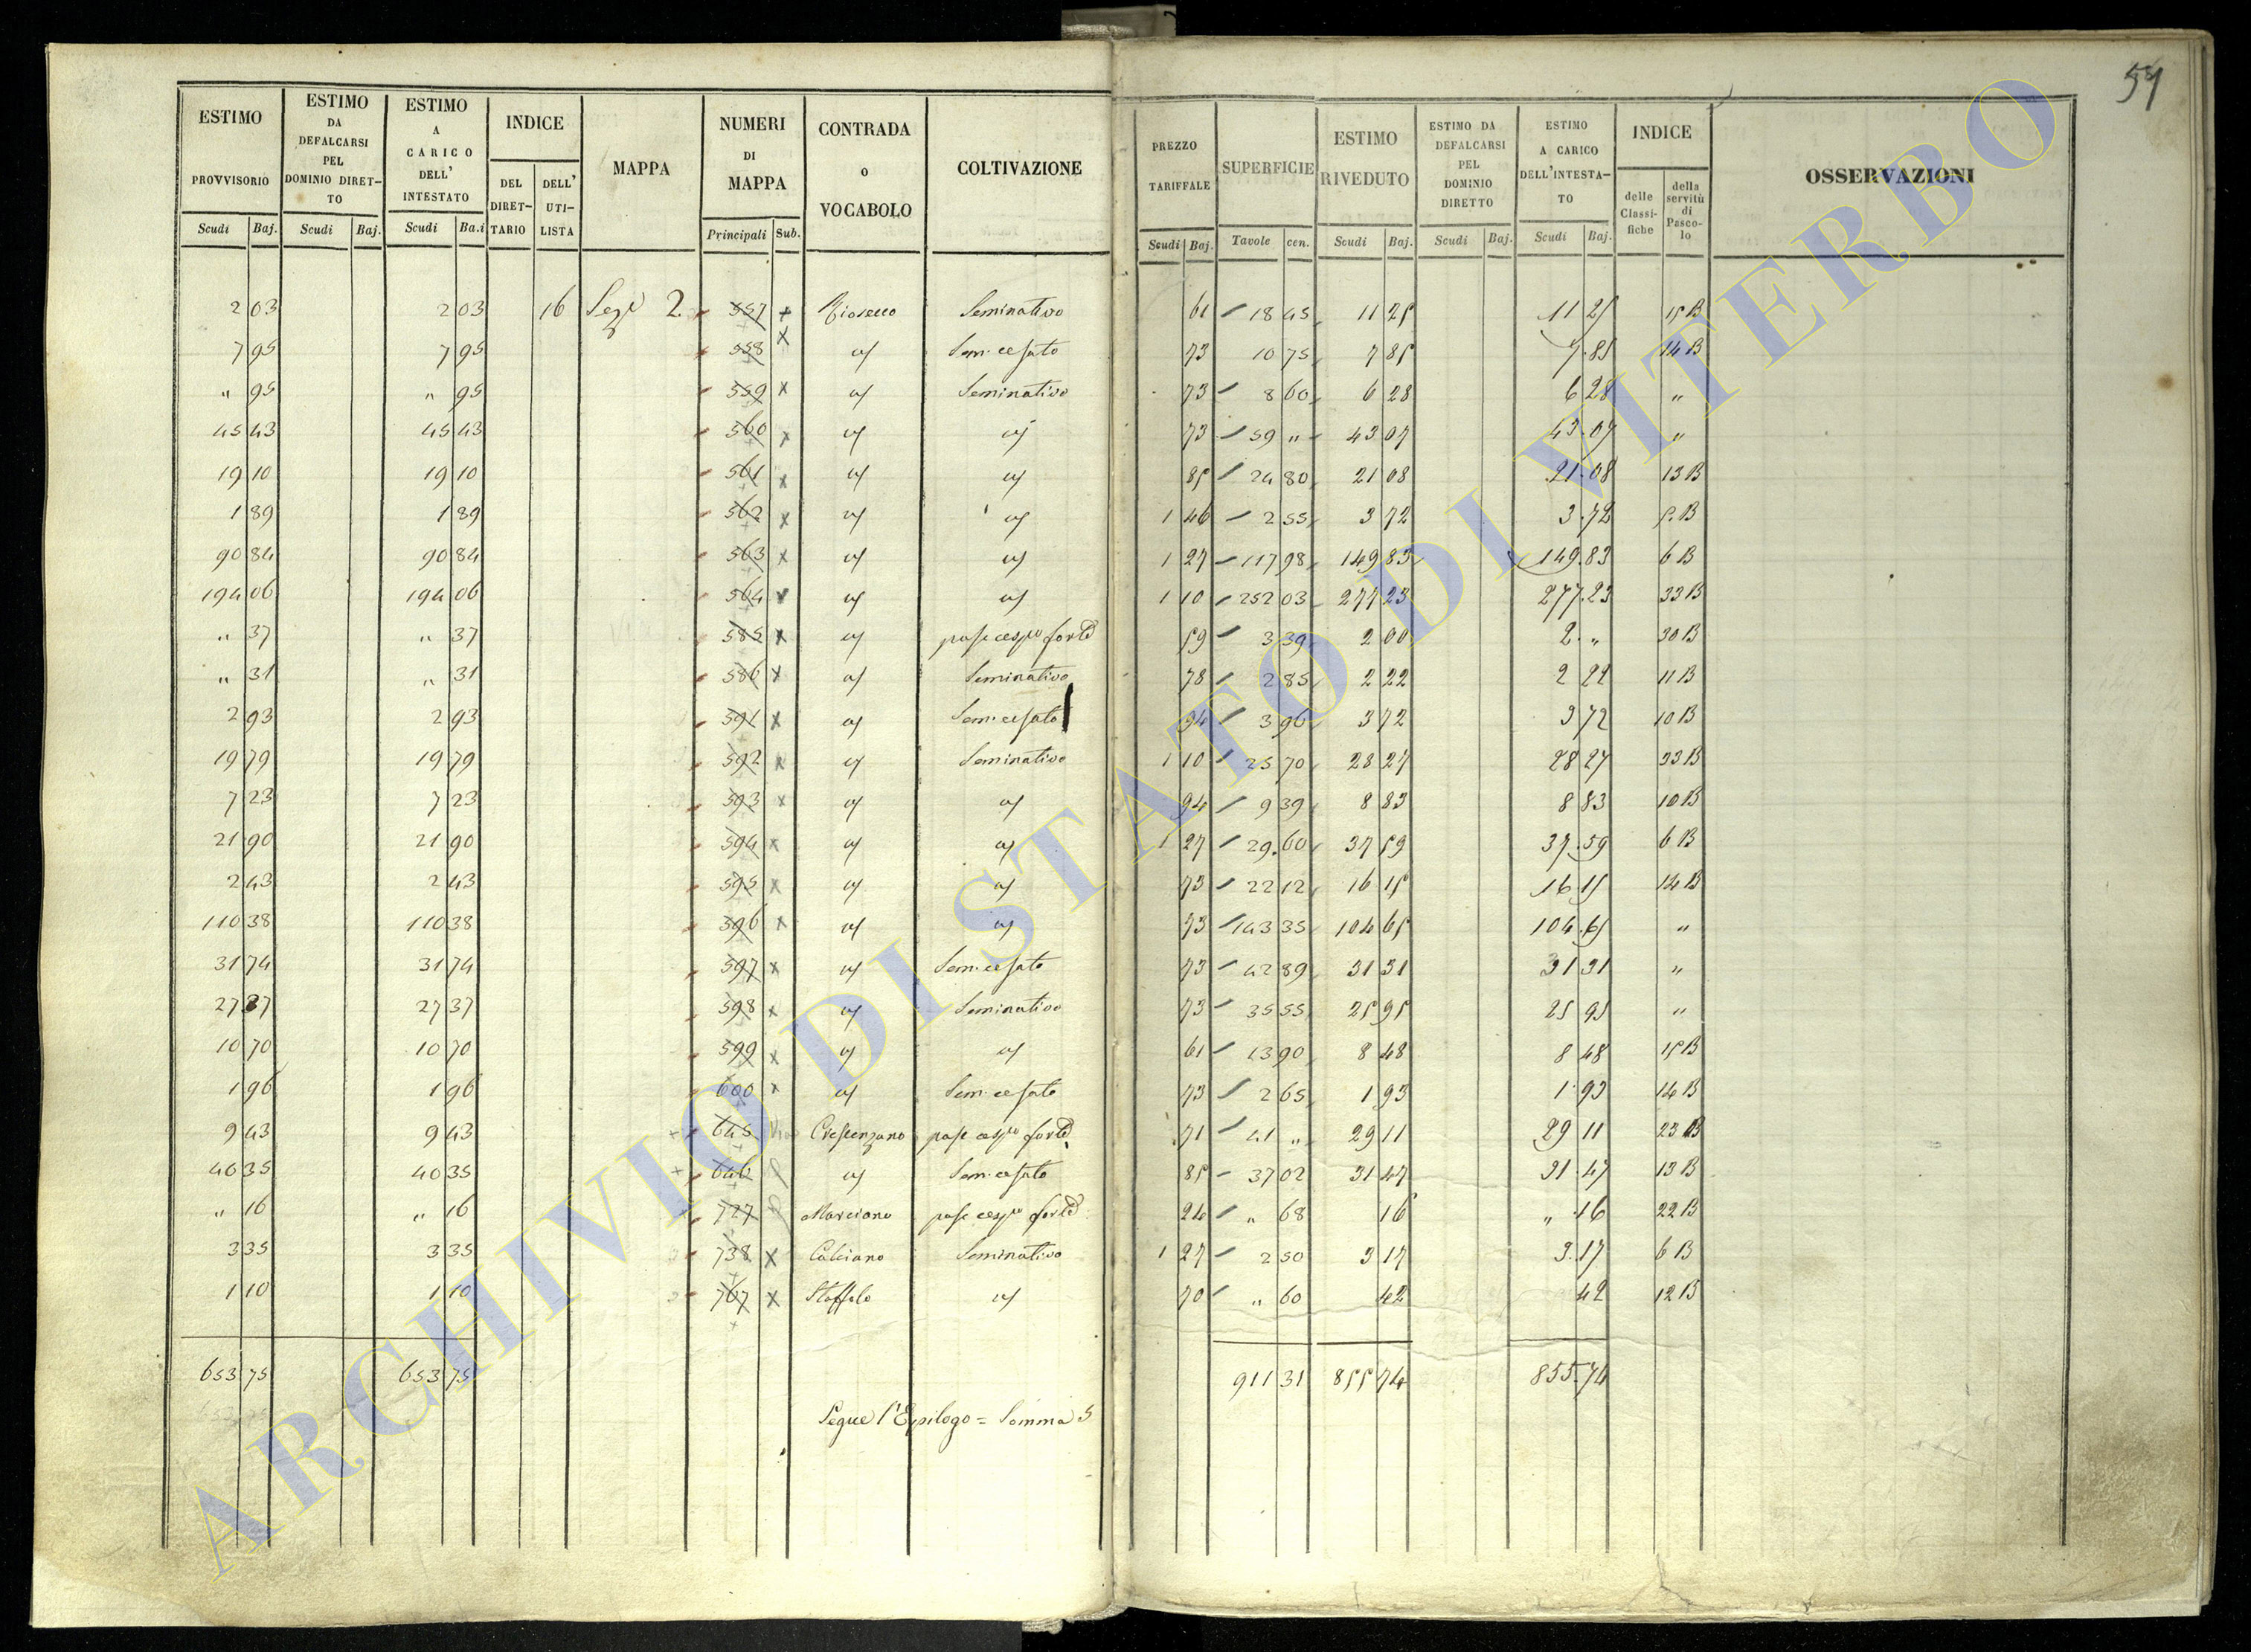 57
ESTIMO PROVVISORIO Scudi Baj. | ESTIMO DA DEFALCARSI PEL DOMINIO DIRET-TO Scudi Baj. | ESTIMO A CARICO DELL' INTESTATO Scudi Ba.i | INDICE DEL DIRET-TARIO DELL' UTI-LISTA | MAPPA | NUMERI DI MAPPA Principali Sub. | CONTRADA O VOCABOLO | COLTIVAZIONE | PREZZO TARIFFALE Scudi Baj. | SUPERFICIE Tavole cen. | ESTIMO RIVEDUTO Scudi Baj. | ESTIMO DA DEFALCARSI PEL DOMINIO DIRETTO Scudi Baj. | ESTIMO A CARICO DELL'INTESTA-TO Scudi Baj. | INDICE delle Classi-fiche della servitù di Pasco-lo | OSSERVAZIONI
2 03 2 03 16 Sez.e 2. 557 + Riosecco Seminativo 61 18 45 11 25 11 25 15 B
7 95 7 95 558 x " Sem. cesato 73 10 75 7 85 7.85 14 B
" 95 " 95 559 x " Seminativo 73 8 60 6 28 6 28 "
45 43 45 43 560 x " " 73 59 " 43 07 43.07 "
19 10 19 10 561 x " " 85 24 80 21 08 21.08 13 B
1 89 1 89 562 x " " 1 46 2 55 3 72 3.72 5.B
90 84 90 84 563 x " " 1 27 117 98 149 83 149.83 6 B
194 06 194 06 564 x " " 1 10 252 03 277 23 277.23 33 B
" 37 " 37 585 x " pasc cespo forte 59 3 39 2 00 2. " 30 B
" 31 " 31 586 x " Seminativo 78 2 85 2 22 2 22 11 B
2 93 2 93 591 x " Sem. cesato 94 3 96 3 72 3 72 10 B
19 79 19 79 592 x " Seminativo 1 10 25 70 28 27 28 27 33 B
7 23 7 23 593 x " " 94 9 39 8 83 8 83 10 B
21 90 21 90 594 x " " 1 27 29.60 37 59 37.59 6 B
2 43 2 43 595 x " " 73 22 12 16 15 16 15 14 B
110 38 110 38 596 x " " 73 143 35 104 65 104.65 "
31 74 31 74 597 x " Sem. cesato 73 42 89 31 31 31 31 "
27 37 27 37 598 x " Seminativo 73 35 55 25 95 25 95 "
10 70 10 70 599 x " " 61 13 90 8 48 8 48 15 B
1 96 1 96 600 x " Sem. cesato 73 2 65 1 93 1.93 14 B
9 43 9 43 645 Crescenzano pasc cespo forte 71 41 " 29 11 29 11 23 B
40 35 40 35 646 " Sem. cesato 85 37 02 31 47 31.47 13 B
" 16 " 16 727 Marciano pasc cespo forte 24 " 68 16 " 16 22 B
3 35 3 35 738 x Calciano Seminativo 1 27 2 50 3 17 3.17 6 B
1 10 1 10 767 x Staffolo " 70 " 60 42 42 12 B
653 75 653 75 911 31 855 74 855.74
Segue l'Epilogo = Somma S
ARCHIVIO DI STATO DI VITERBO